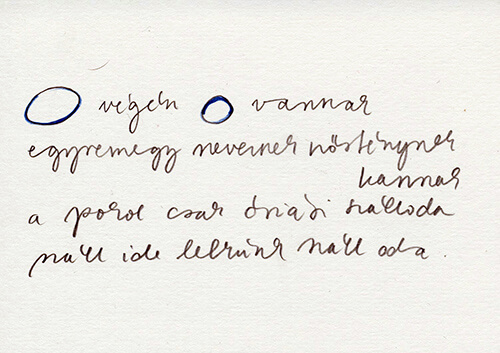 O végén O vannak
egyremegy neveznek nősténynek
kannak
a pokol csak óriási szálloda
száll ide lelkünk száll oda.